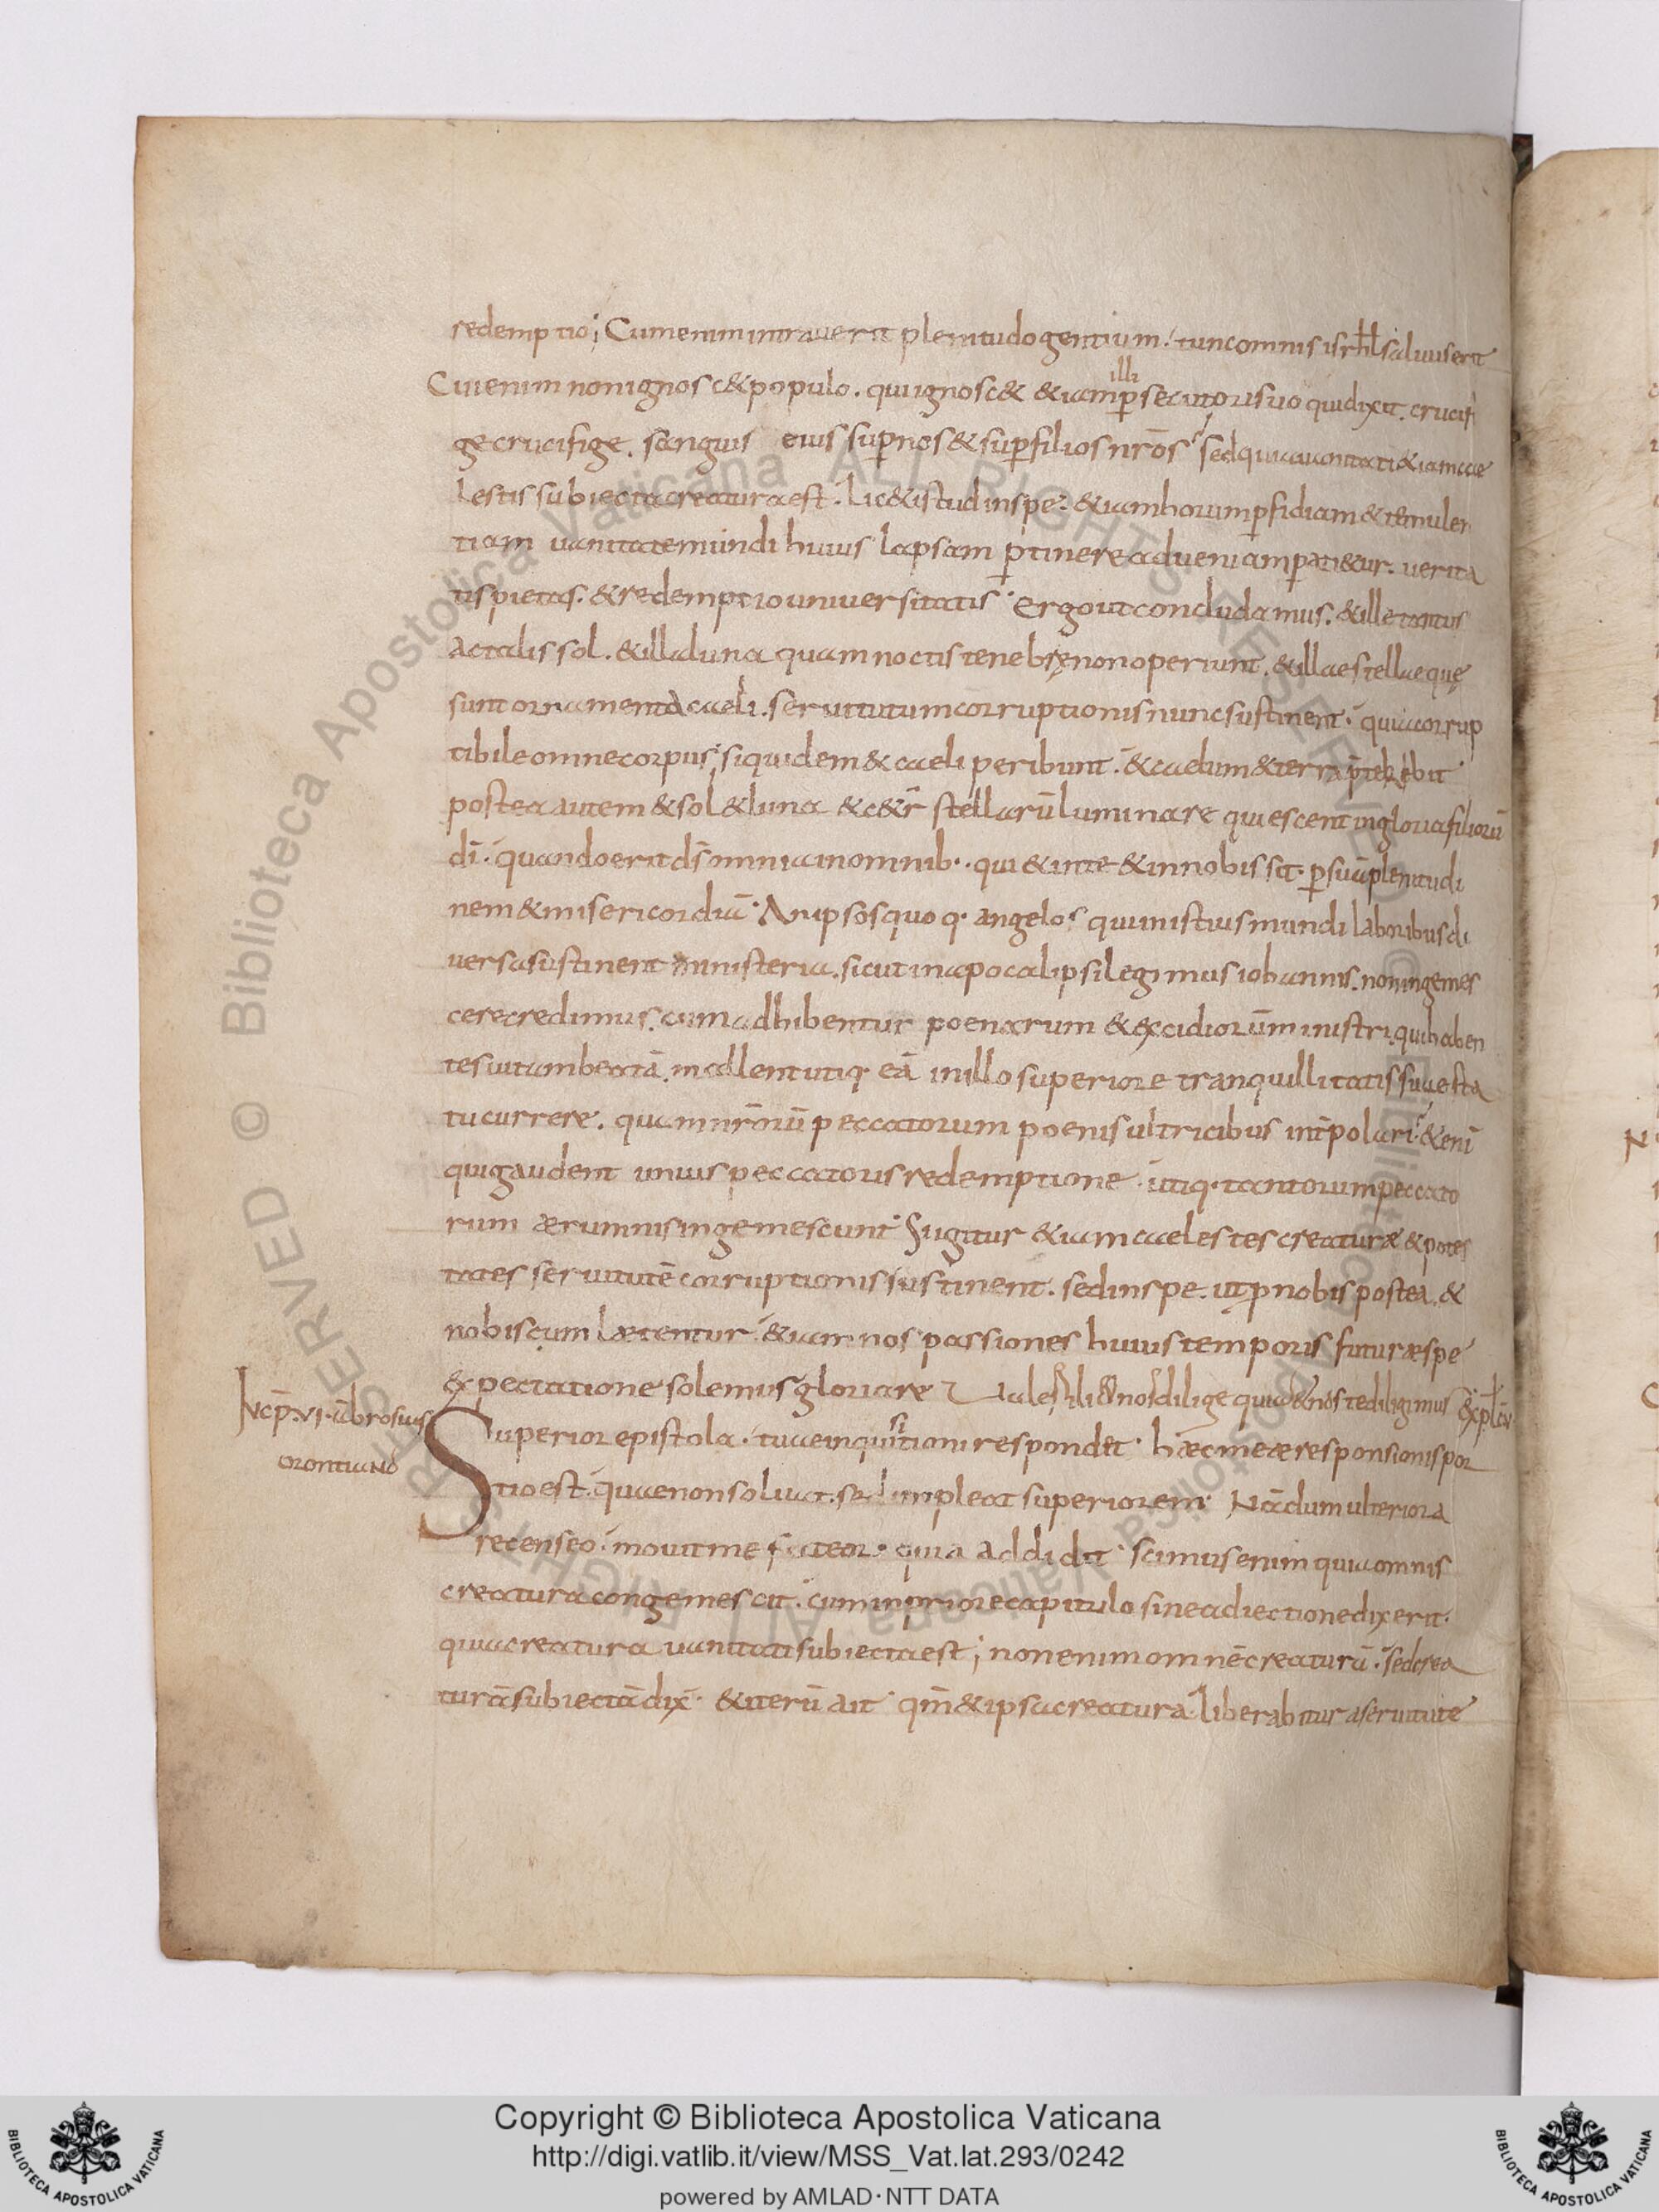 redemptio; Cum enim intrauerit plenitudo gentium. tunc omnis isrhl saluus erit
Cui enim non ignoscet populo. qui ignoscet etiam illi
persecutori suo qui dixit. crucifi
ge crucifige. sanguis eius sup nos & sup filios nrōs sed quia uanitati &iam cae
lestis subiecta creatura est. lic& istud in spe. &iam horum pfidiam & temulen
tiam uanitate mundi huius lapsam ptinere ad ueniam pati&ur. uerita
tis pietas. & redemptio uniuersitatis. Ergo ut concludamus. & ille tantus
ac talis sol. & illa luna quam noctis tenebrę non operiunt. & illae stellae quę
sunt ornamenta caeli. seruitutum corruptionis nunc sustinent. quia corrup
tibile omne corpus; siquidem & caeli peribunt. & caelum & terra pteribit
postea autem & sol & luna & c&r̄ stellarū luminare quiescent in gloria filiorū
dī. quando erit ds̄ omnia in omnib. qui & in te & in nobis sit. p suā plenitudi
nem & misericordiā. An ipsos quoq. angelos qui in istius mundi laboribus di
uersa sustinent ministeria. sicut in apocalipsi legimus iohannis. non ingemes
cere credimus. cum adhibentur poenarum & excidiorū ministri. qui haben
tes uitam beatā. mallent utiq. eā in illo superiore tranquillitatis suae sta
tu currere. quam nrōrū peccatorum poenis ultricibus intpolari. &enī
qui gaudent unius peccatoris redemptione. utiq. tantorum peccato
rum ærumnis ingemescunt. Si igitur &iam caelestes creaturæ & potes
tates seruitutē corruptionis sustinent. sed in spe. ut p nobis postea. &
nobiscum lætentur. &iam nos passiones huius temporis futuræ spe
expectatione solemus gloriare Uale fili & nos dilige quia & nos te diligimus Expl. ep. v.
Incp̄. vi. ābrosius
orontiano
Superior epistola. tuae inquisitioni respondet. hæc meæ responsionis por
tio est. quae non soluat. sed impleat superiorem. Nā dum ulteriora
recenseo. mouit me fateor. quia addidit. scimus enim quia omnis
creatura congemescit. cum in priore capitulo sine adiectione dixerit.
quia creatura uanitati subiecta est; non enim omnē creaturā. sed crea
turā subiectā dix̄. & iterū ait. qm̄ & ipsa creatura. liberabitur a seruitute
Copyright © Biblioteca Apostolica Vaticana
http://digi.vatlib.it/view/MSS_Vat.lat.293/0242
powered by AMLAD·NTT DATA
BIBLIOTECA APOSTOLICA VATICANA
BIBLIOTECA APOSTOLICA VATICANA